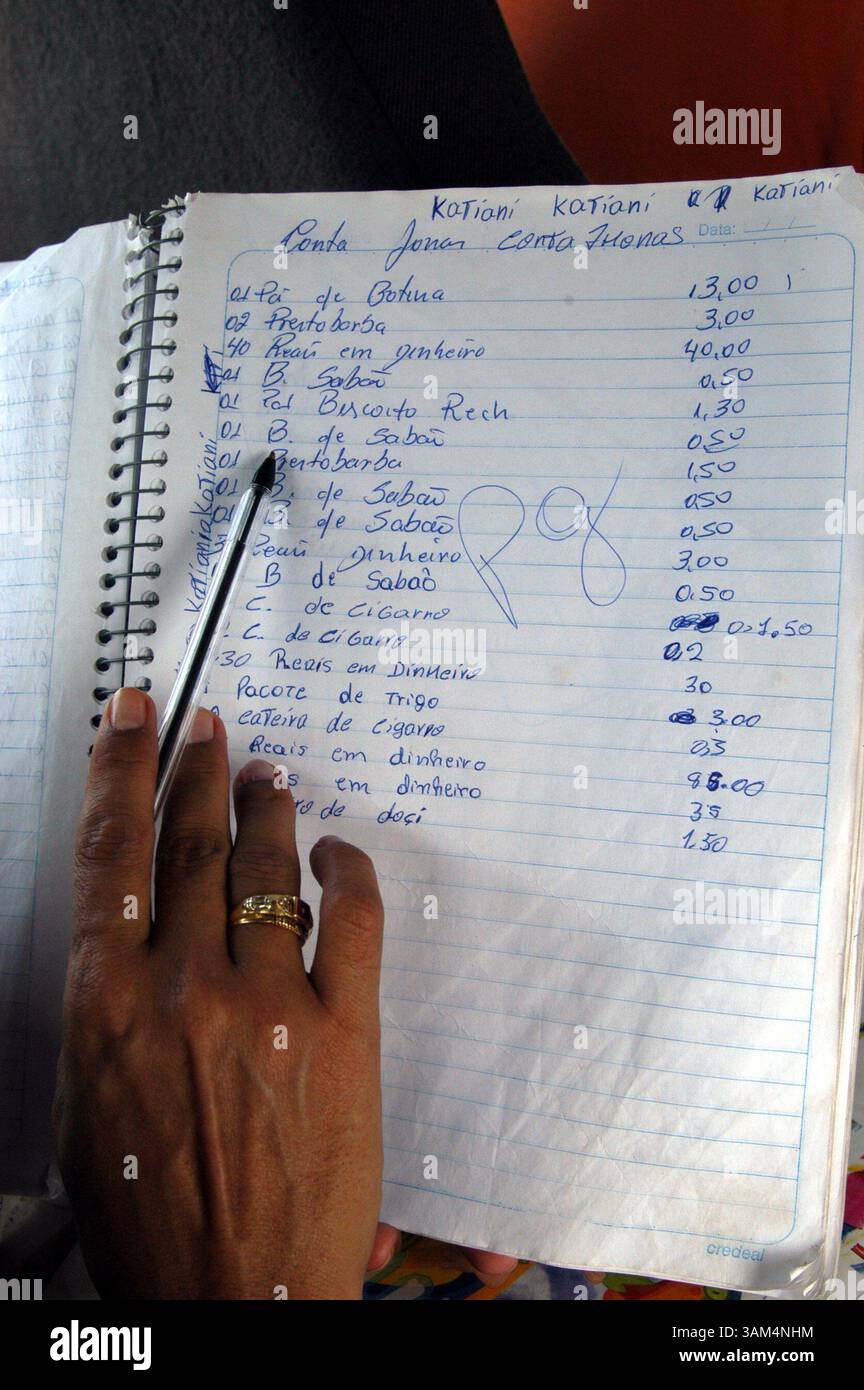 Katiani Katiani Katiani
Data: / /
Conta Jonas Conta Jhonas
01 Pá de Botina 13,00
02 Prestobarba 3,00
40 Reais em Dinheiro 40,00
01 B. Sabaõ 0,50
01 Pat Biscoito Rech 1,30
01 B. de Sabaõ 0,50
01 Prestobarba 1,50
01 B. de Sabaõ 0,50
B. de Sabaõ 0,50
Reais Dinheiro 3,00
B de Sabaõ 0,50
C. de Cigarro 1,50
C. de Cigarro 0,2
30 Reais em Dinheiro 30
Pacote de Trigo 3.00
Cateira de Cigarro 0,5
Reais em dinheiro
em dinheiro 35
de doçi 1,50
Pg
Katiani Katiani
credeal
alamy
Image ID: 3AM4NHM
www.alamy.com